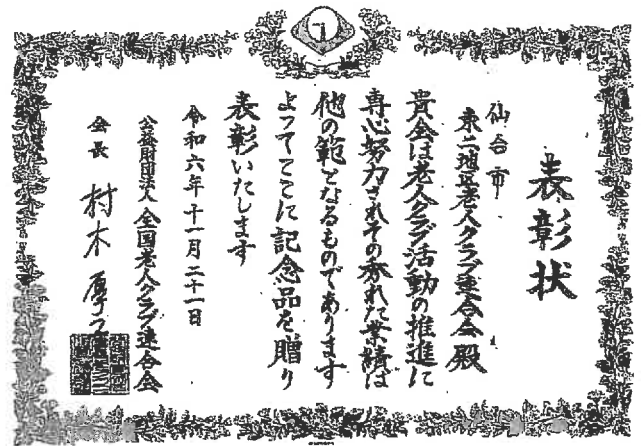 表彰状
仙台市
東二地区老人クラブ連合会殿
貴会は老人クラブ活動の推進に
専心努力されその秀れた業績は
他の範となるものであります
よってここに記念品を贈り
表彰いたします
令和六年十一月二十一日
公益財団法人 全国老人クラブ連合会
会長 村木厚子